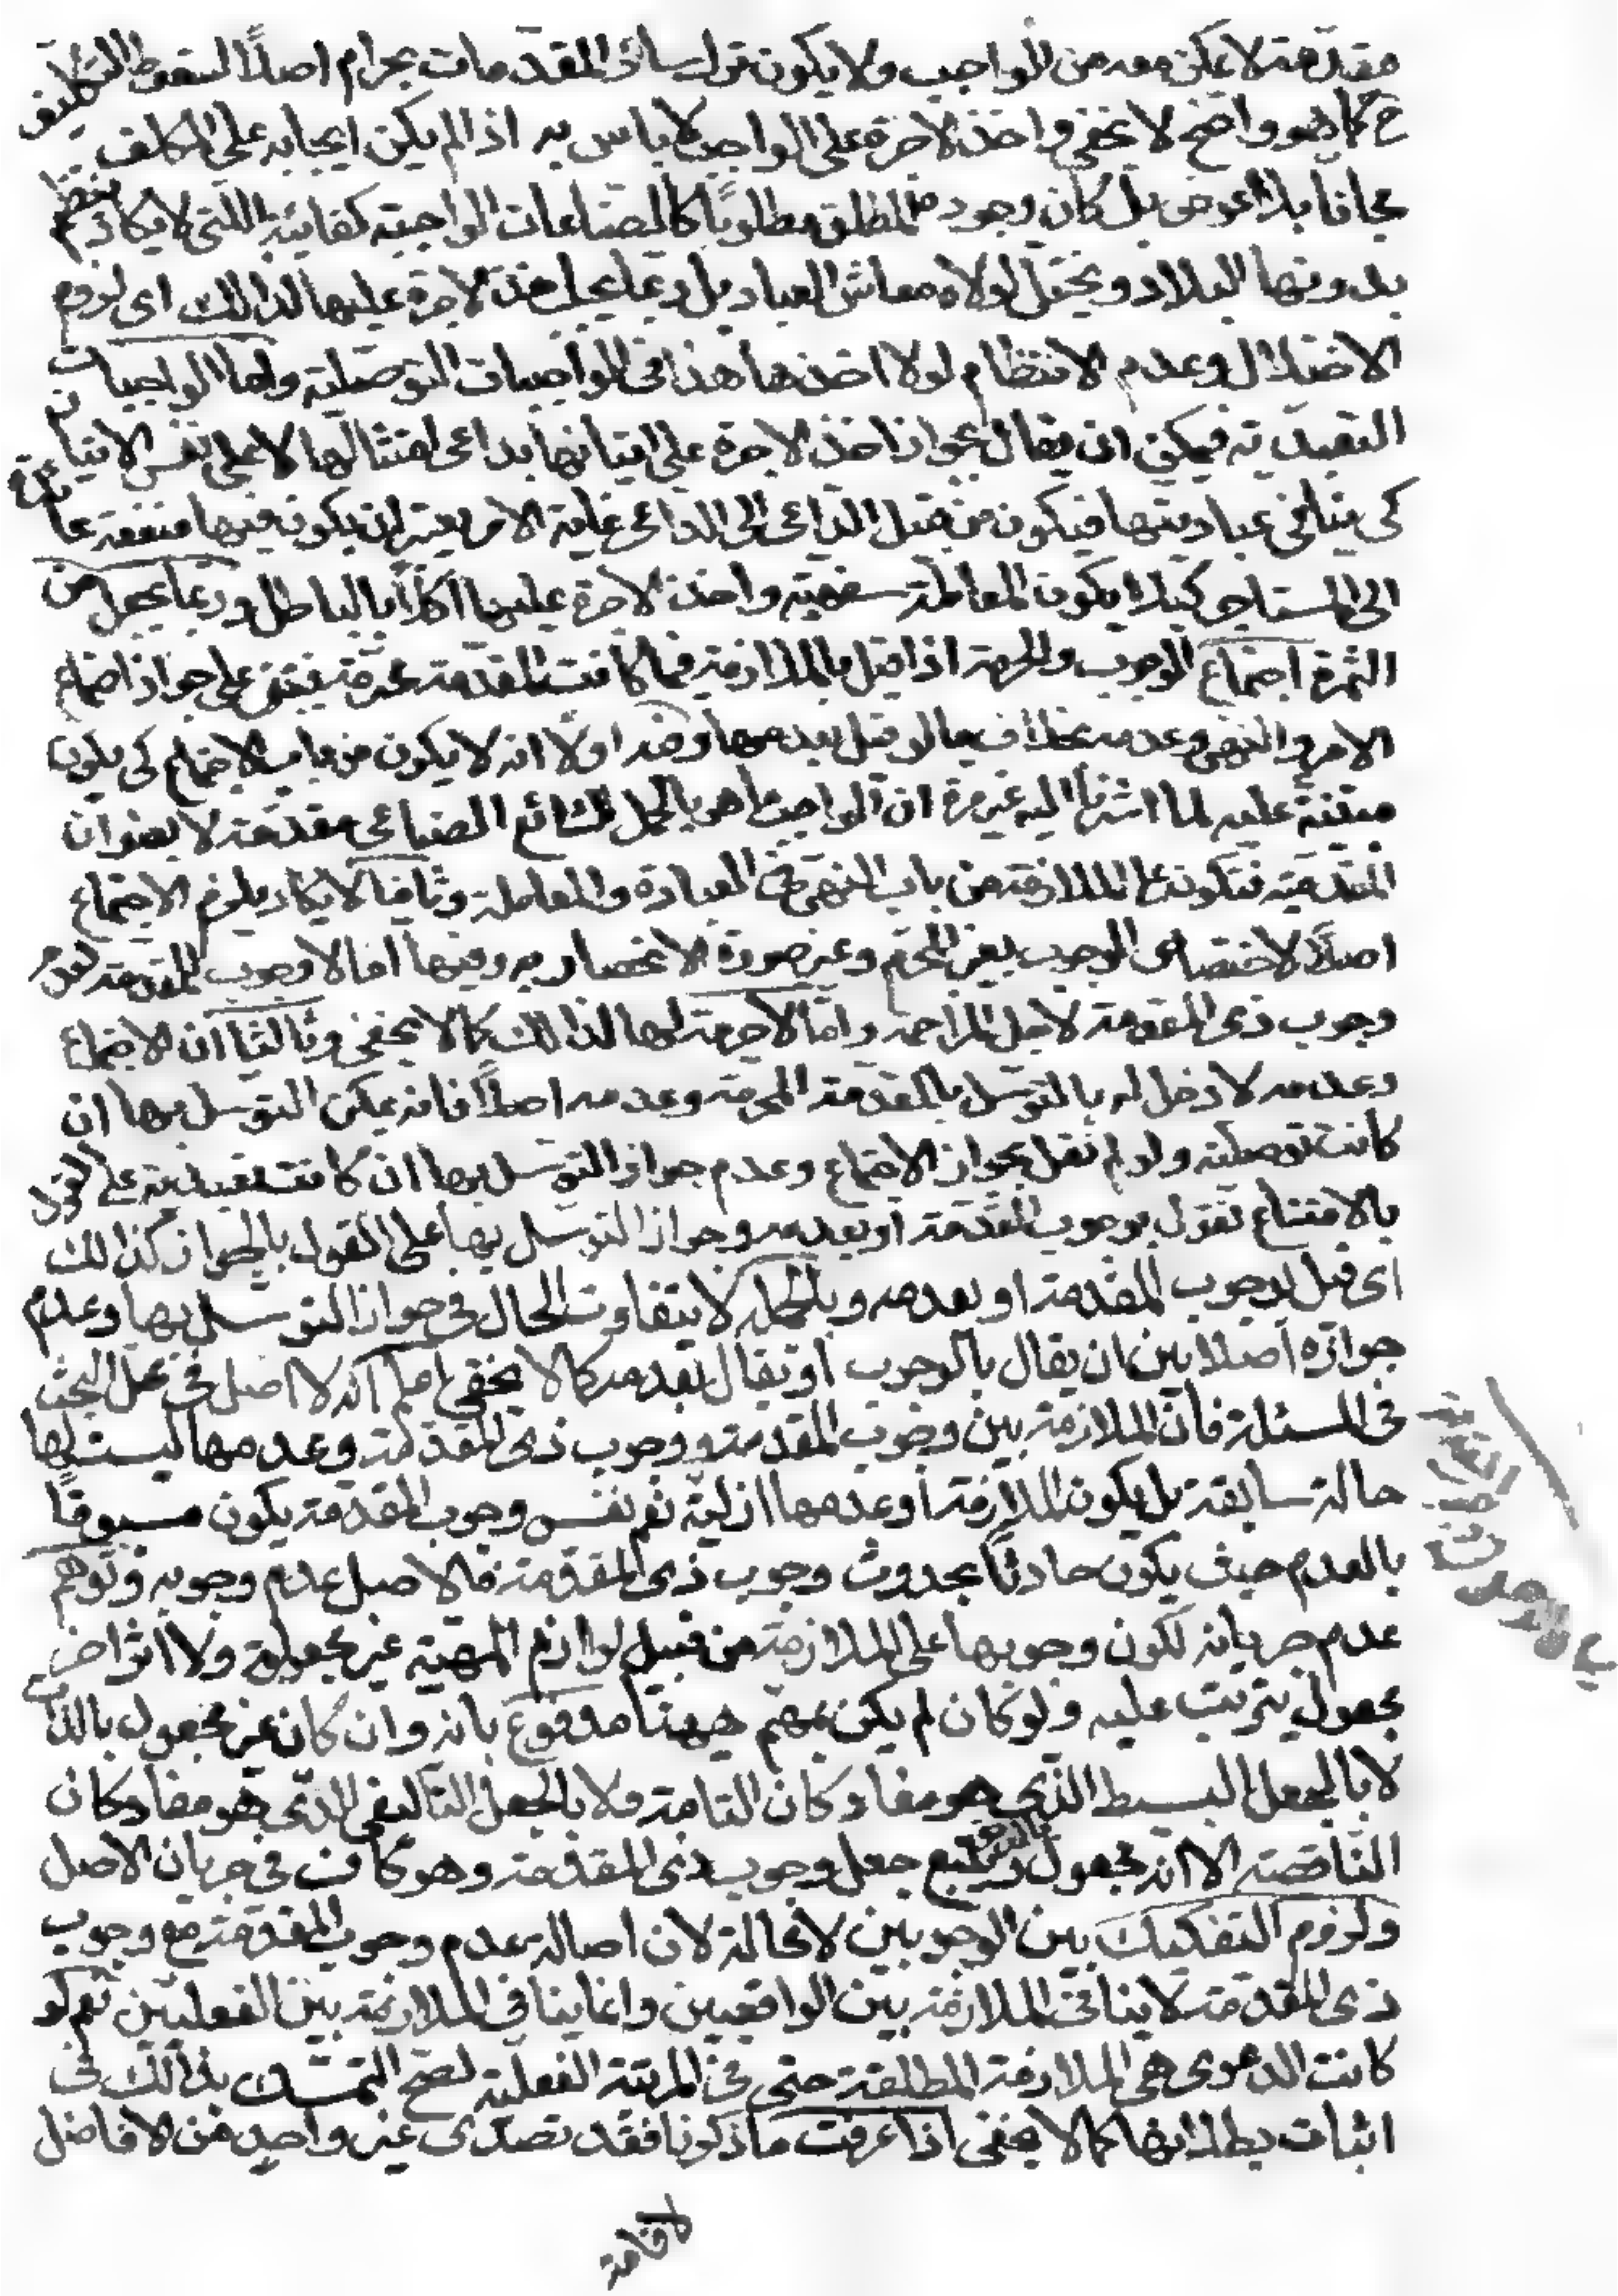 مقدمة لا يمكن معه من الواجب ولا يكون ترك سائر المقدمات بحرام اصلاً لسقوط التكليف
ح كما هو واضح لا يخفى واخذ الاجرة على الواجب لا باس به اذا لم يكن ايجابه على المكلف
مجانا بلا عوض بل كان وجوده المطلق مطلوبًا كالصناعات الواجبة كفائية اللتى لا يكاد ينتظم
بدونها البلاد ويختل لولاه معاش العباد بل ربما يجب اخذ الاجرة عليها لذالك اى لزوم
الاختلال وعدم الانتظام لولا اخذها هذا فى الواجبات التوصلية واما الواجبات
التعبدية فيمكن ان يقال بجواز اخذ الاجرة على اتيانها بداعى امتثالها لا على نفس الاتيان
كى ينافى عباديتها فيكون من قبيل الداعى الى الداعى غاية الامر يعتبر ان يكون فيها منفعة عائدة
الى المستاجر كيلا يكون المعاملة سفهية واخذ الاجرة عليها اكلاً بالباطل وربما يجعل من
الثمرة اجتماع الوجوب والحرمة اذا قيل بالملازمة فيما كانت المقدمة محرمة فيبتنى على جواز اجتماع
الامر والنهى وعدمه بخلاف ما لو قيل بعدمها وفيه اولًا انه لا يكون من باب الاجتماع كى يكون
مبتنية عليه لما اشرنا اليه غير مرة ان الواجب ما هو بالحمل الشائع الصناعى مقدمة لا بعنوان
المقدمية فيكون على الملازمة من باب النهى فى العبادة والمعاملة وثانيا لا يكاد يلزم الاجتماع
اصلًا لاختصاص الوجوب بغير المحرم وغير صورة الانحصار به وفيها اما لا وجوب للمقدمة لعدم
وجوب ذى المقدمة لاجل المزاحمة واما لا حرمة لها لذالك كما لا يخفى وثالثا ان الاجتماع
وعدمه لا دخل له بالتوسل بالمقدمة المحرمة وعدمه اصلًا فانه يمكن التوسل بها ان
كانت توصلية ولو لم نقل بجواز الاجتماع وعدم جواز التوسل بها ان كانت تعبدية على القول
بالامتناع نقول بوجوب المقدمة او بعدمه وجواز التوسل بها على القول بالجواز كذالك
اى قيل بوجوب المقدمة او بعدمه وبالجملة لا يتفاوت الحال فى جواز التوسل بها وعدم
جوازه اصلا بين ان يقال بالوجوب او يقال بعدمه كما لا يخفى اعلم انه لا اصل فى محل البحث
فى المسئلة فان الملازمة بين وجوب المقدمة ووجوب ذى المقدمة وعدمها ليست لها
حالة سابقة بل يكون الملازمة او عدمها ازلية نعم نفس وجوب المقدمة يكون مسبوقًا
بالعدم حيث يكون حادثًا بحدوث وجوب ذى المقدمة فالاصل عدم وجوبه وتوهم
عدم جريانه لكون وجوبها على الملازمة من قبيل لوازم المهية غير مجعولة ولا اثر اخر
مجعول يترتب عليه ولو كان لم يكن بمهم ههنا مدفوع بانه وان كان غير مجعول بالذات
لا بالجعل البسيط الذى هو مفاد كان التامة ولا بالجعل التاليفى الذى هو مفاد كان
الناقصة الا انه مجعول بالعرض وبتبع جعل وجوب ذى المقدمة وهو كاف فى جريان الاصل
ولزوم التفكيك بين الوجوبين لا محالة لان اصالة عدم وجوب المقدمة مع وجوب
ذى المقدمة لا ينافى الملازمة بين الواقعيين وانما ينافى الملازمة بين الفعليين نعم لو
كانت الدعوى هى الملازمة المطلقة حتى فى المرتبة الفعلية لصح التمسك بذالك فى
اثبات بطلانها كما لا يخفى اذا عرفت ما ذكرنا فقد تصدى غير واحد من الافاضل
لاقامة